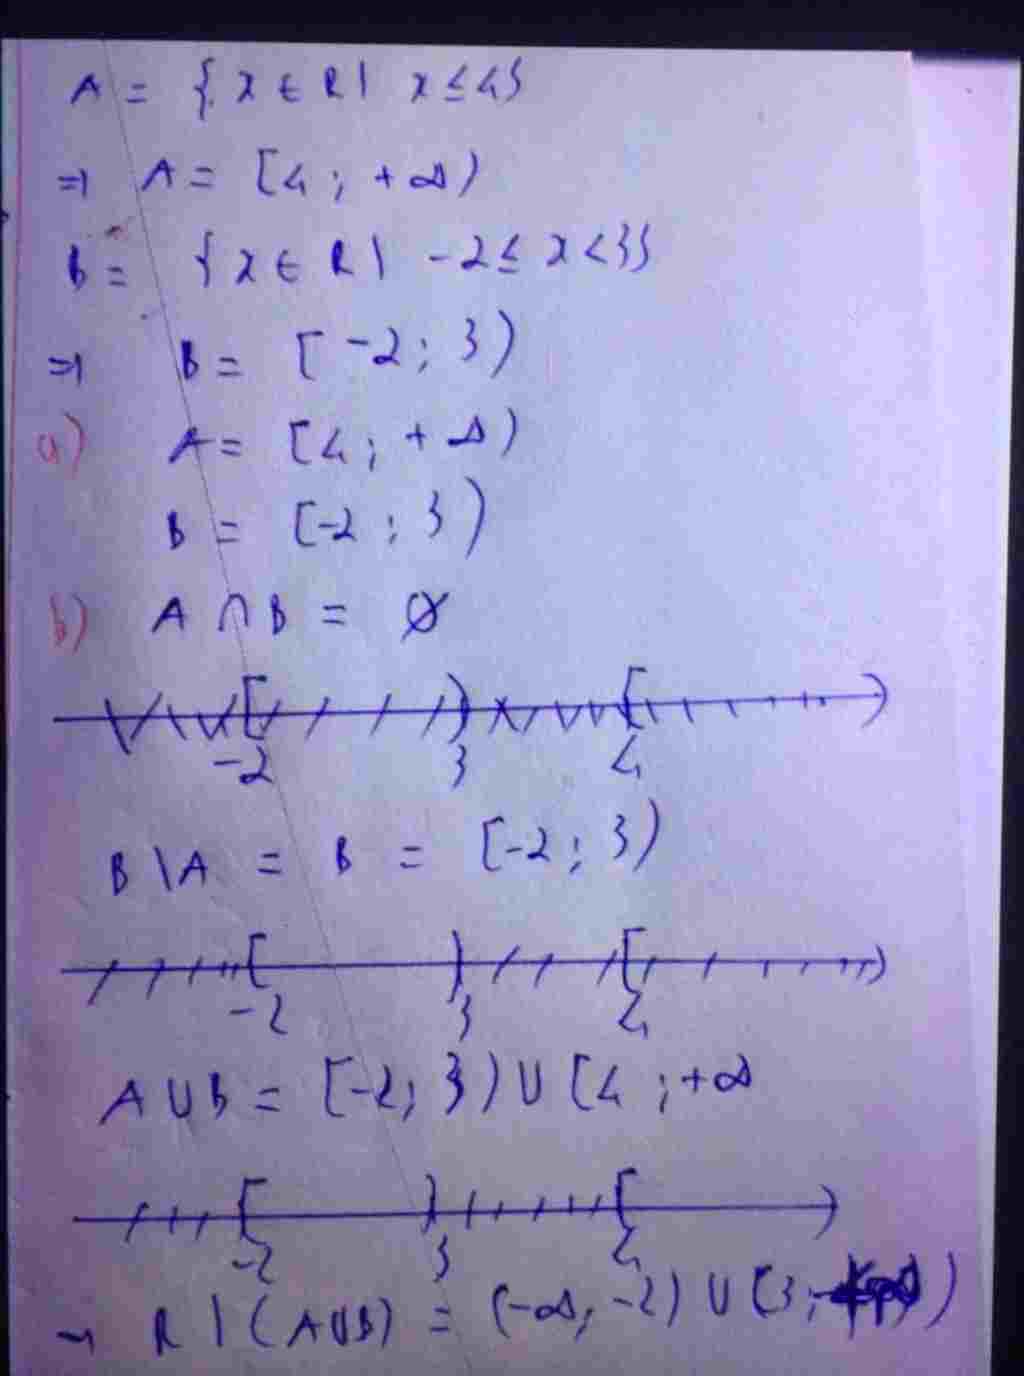 A = {x ∈ R | x ≤ 4}
⇒ A = [4; +∞)
B = {x ∈ R | -2 ≤ x < 3}
⇒ B = [-2; 3)
a) A = [4; +∞)
B = [-2; 3)
b) A ∩ B = ∅
-2 3 4
B \ A = B = [-2; 3)
-2 3 4
A ∪ B = [-2; 3) ∪ [4; +∞
-2 3 4
→ R \ (A ∪ B) = (-∞; -2) ∪ [3;